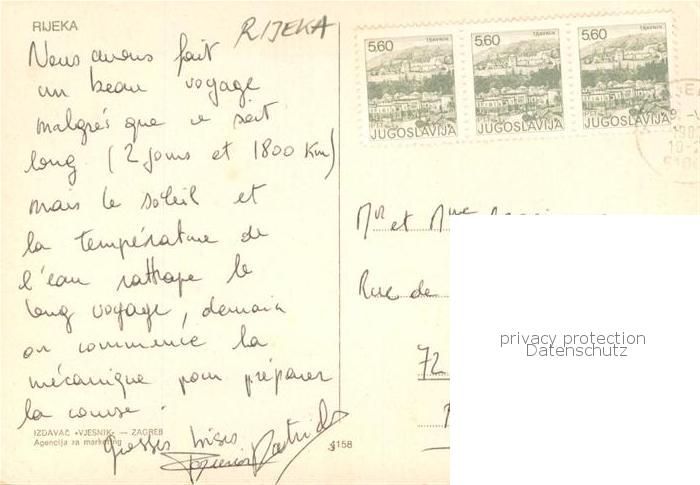 RIJEKA
RIJEKA
Nous avons fait
un beau voyage
malgrés que ce soit
long (2 jours et 1800 Km)
mais le soleil et
la température de
l'eau rattrape le
long voyage, demain
on commence la
mécanique pour préparer
la course.
Grosses bises
Patrick
IZDAVAČ «VJESNIK» — ZAGREB
Agencija za marketing
§158
5,60 TRAVNIK JUGOSLAVIJA
5,60 TRAVNIK JUGOSLAVIJA
5,60 TRAVNIK JUGOSLAVIJA
Mr et Mme
Rue de
72
privacy protection
Datenschutz